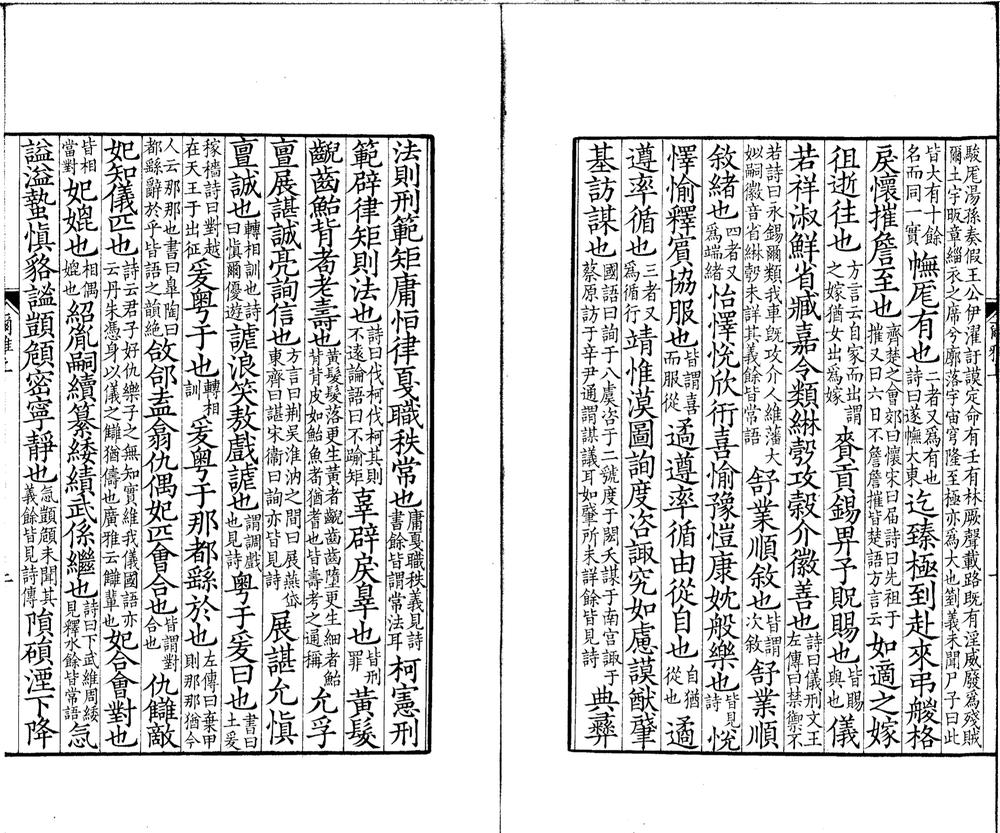 駿厖湯孫奏假王公伊濯訏謨定命有壬有林厥聲載路既有淫威廢爲殘賊
爾土宇昄章緇衣之席兮廓落宇宙穹隆至極亦爲大也箌義未聞尸子曰此
皆大有十餘名而同一實 幠厖有也 二者又爲有也詩曰遂幠大東 迄臻極到赴來弔艐格
戾懷摧詹至也 齊楚之會郊曰懷宋曰屆詩曰先祖于摧又曰六日不詹詹摧皆楚語方言云 如適之嫁
徂逝往也 方言云自家而出謂之嫁猶女出爲嫁 賚貢錫畀予貺賜也 皆賜與也 儀
若祥淑鮮省臧嘉令類綝彀攻穀介徽善也 詩曰儀刑文王左傳曰禁禦不
若詩曰永錫爾類我車既攻介人維藩大姒嗣徽音省綝彀未詳其義餘皆常語 舒業順敘也 皆謂次敘 舒業順
敘緒也 四者又爲端緒 怡懌悅欣衎喜愉豫愷康妉般樂也 皆見詩 悅
懌愉釋賓協服也 皆謂喜而服從 遹遵率循由從自也 自猶從也 遹
遵率循也 三者又爲循行 靖惟漠圖詢度咨諏究如慮謨猷肈
基訪謀也 國語曰詢于八虞咨于二虢度于閎夭謀于南宫諏于蔡原訪于辛尹通謂謀議耳如肈所未詳餘皆見詩 典彝
爾雅上
法則刑範矩庸恒律戛職秩常也 庸戛職秩義見詩書餘皆謂常法耳 柯憲刑
範辟律矩則法也 詩曰伐柯伐柯其則不遠論語曰不踰矩 辜辟戾辠也 皆刑罪 黃髮
齯齒鮐背耇老壽也 黃髮髮落更生黃者齯齒齒墮更生細者鮐背背皮如鮐魚耇猶耆也皆壽考之通稱 允孚
亶展諶誠亮詢信也 方言曰荆吴淮汭之間曰展燕岱東齊曰諶宋衞曰詢亦皆見詩 展諶允慎
亶誠也 轉相訓也詩曰慎爾優遊 謔浪笑敖戲謔也 謂調戲也見詩 粤于爰曰也 書曰土爰
稼穡詩曰對越在天王于出征 爰粤于也 轉相訓 爰粤于那都繇於也 左傳曰棄甲則那那猶今
人云那那也書曰臯陶曰都繇辭於乎皆語之韻絶 敆郃盍翕仇偶妃匹會合也 皆謂對合也 仇讎敵
妃知儀匹也 詩云君子好仇樂子之無知實維我儀國語亦云丹朱憑身以儀之讎猶儔也廣雅云讎輩也 妃合會對也
皆相當對 妃媲也 相偶媲也 紹胤嗣續纂緌績武係繼也 詩曰下武維周緌見釋水餘皆常語 忥
謚溢蟄慎貉謐顗頠密寧靜也 忥顗頠未聞其義餘皆見詩傳 隕磒湮下降